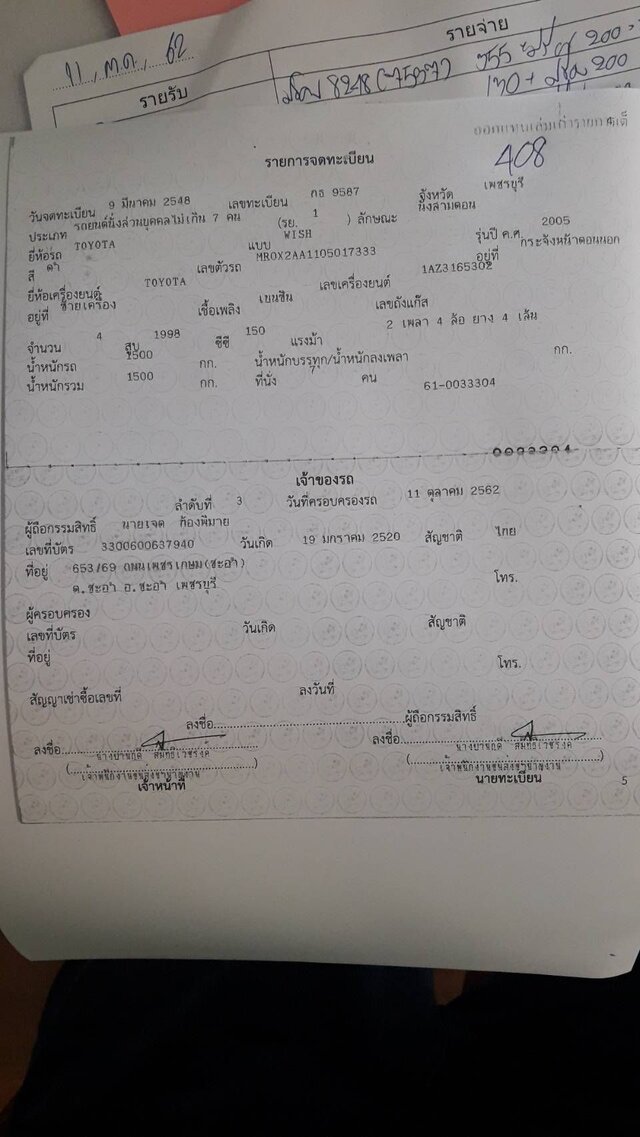 11 , ต.ค. , 62
รายรับ
รายจ่าย
200
130 + 200
ออกแทนเล่มเก่ารายการเต็
รายการจดทะเบียน
408
วันจดทะเบียน 9 มีนาคม 2548 เลขทะเบียน กธ 9587 จังหวัด เพชรบุรี
ประเภท รถยนต์นั่งส่วนบุคคลไม่เกิน 7 คน (รย. 1 ) ลักษณะ นั่งสามตอน
ยี่ห้อรถ TOYOTA แบบ WISH รุ่นปี ค.ศ. 2005
สี ดำ เลขตัวรถ MR0X2AA1105017333 อยู่ที่ กระจังหน้าตอนนอก
ยี่ห้อเครื่องยนต์ TOYOTA เลขเครื่องยนต์ 1AZ3165302
อยู่ที่ ซ้ายเครื่อง เชื้อเพลิง เบนซิน เลขถังแก๊ส
จำนวน 4 สูบ 1998 ซีซี 150 แรงม้า 2 เพลา 4 ล้อ ยาง 4 เส้น
น้ำหนักรถ 1500 กก. น้ำหนักบรรทุก/น้ำหนักลงเพลา กก.
น้ำหนักรวม 1500 กก. ที่นั่ง 7 คน 61-0033304
0033304
เจ้าของรถ
ลำดับที่ 3 วันที่ครอบครองรถ 11 ตุลาคม 2562
ผู้ถือกรรมสิทธิ์ นายเจต ก้องพิมาย
เลขที่บัตร 3300600637940 วันเกิด 19 มกราคม 2520 สัญชาติ ไทย
ที่อยู่ 653/69 ถนนเพชรเกษม(ชะอำ)
ต.ชะอำ อ.ชะอำ เพชรบุรี โทร.
ผู้ครอบครอง
เลขที่บัตร วันเกิด สัญชาติ
ที่อยู่ โทร.
สัญญาเช่าซื้อเลขที่ ลงวันที่
ลงชื่อ ผู้ถือกรรมสิทธิ์
ลงชื่อ ลงชื่อ
เจ้าพนักงานขนส่งชำนาญงาน เจ้าพนักงานขนส่งชำนาญงาน
เจ้าหน้าที่ นายทะเบียน 5